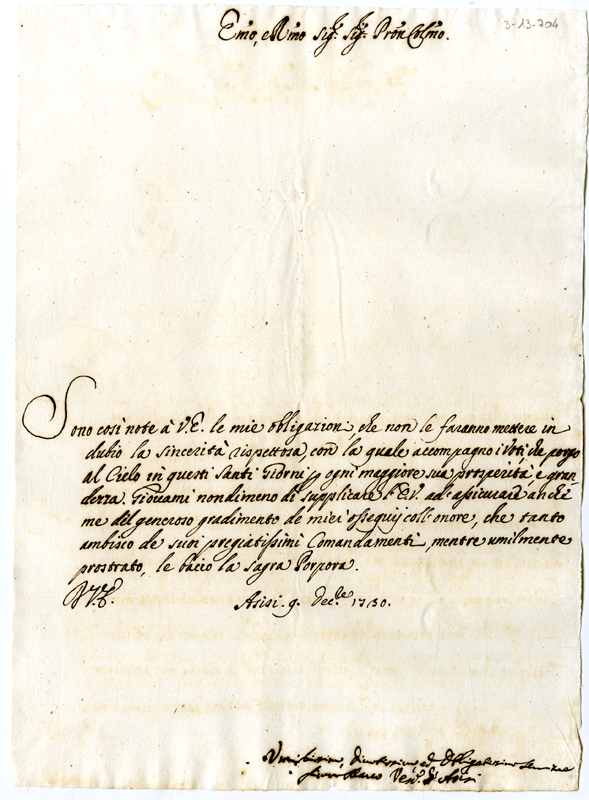 3-13-704
Emo, e Rmo Sig.r Sig.r Pron Colmo.
Sono così note à V.E. le mie obbligazioni, che non le faranno mettere in
dubio la sincerità rispettosa, con la quale accompagno i Voti che porgo
al Cielo in questi Santi Giorni p ogni maggiore sua prosperità, e gran
dezza. Giovami nondimeno di supplicare l'E.V. ad assicurarmi anche
me del generoso gradimento de miei ossequij coll'onore, che tanto
ambisco de suoi pregiatissimi Comandamenti, mentre umilmente
prostrato, le bacio la Sagra Porpora.
V.E.
Asisi. 9. Dec.bre 1730.
Umilissimo, Divotissimo ed Obbligatissimo
Vesc.o d'Asisi